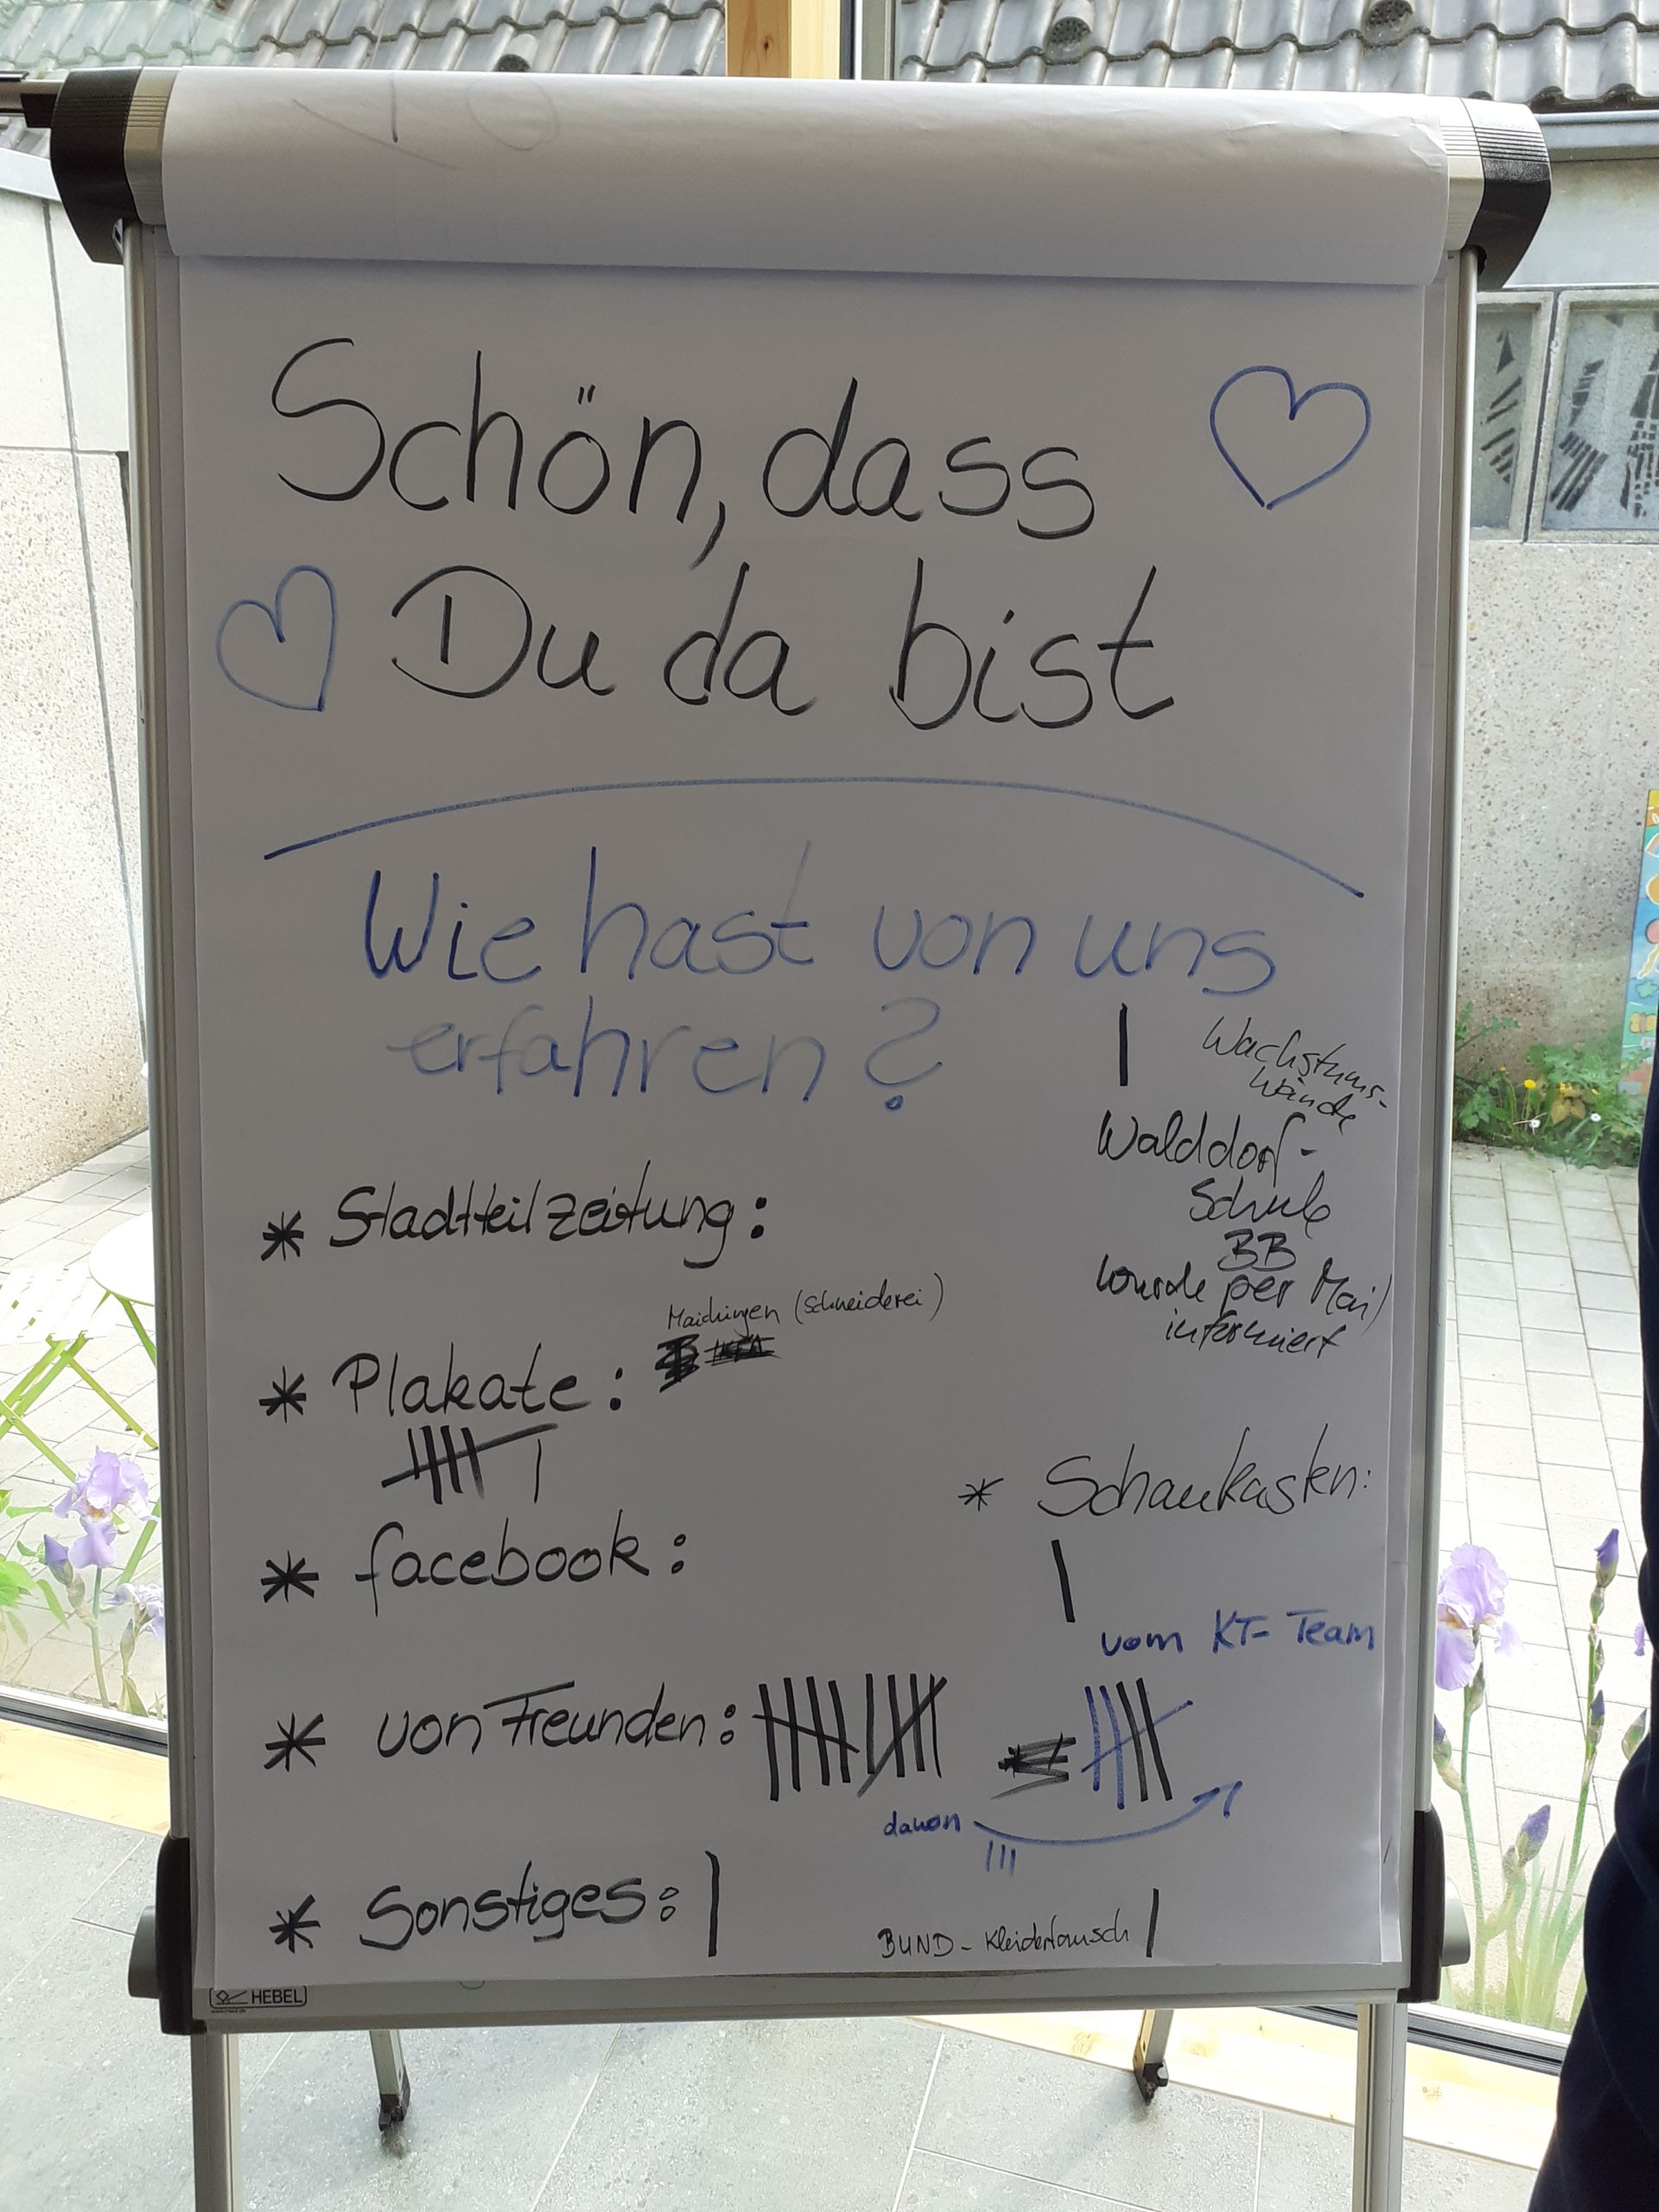 Schön, dass
Du da bist
Wie hast von uns
erfahren?
Wachstums-
wände
Walddorf-
Schule
BB
wurde per Mail
informiert
* Stadtteilzeitung:
Maichingen (Schneiderei)
* Plakate:
* Schaukasten:
* facebook:
vom KT-Team
* von Freunden:
davon
* Sonstiges:
BUND - Kleidertausch
HEBEL